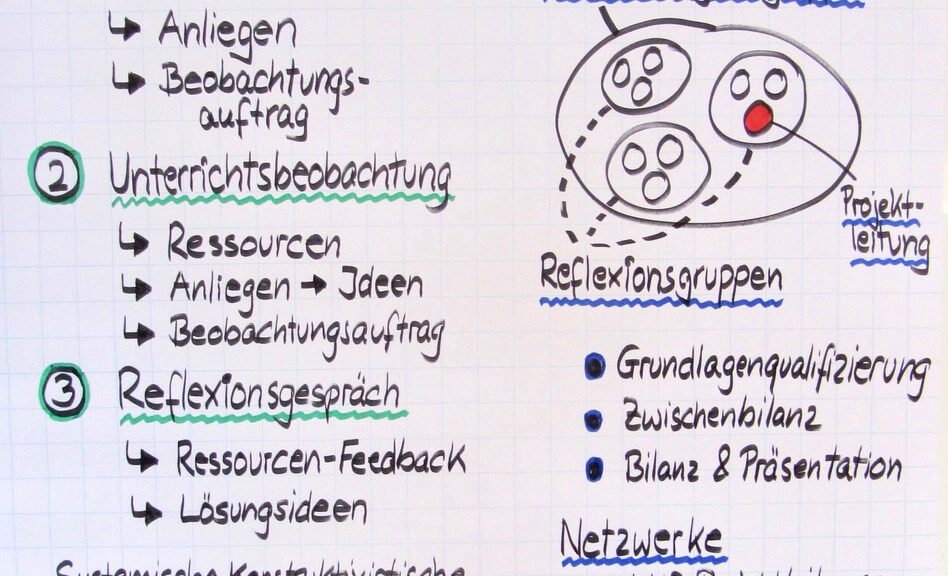 ↳ Anliegen
↳ Beobachtungs-
auftrag
2 Unterrichtsbeobachtung
↳ Ressourcen
↳ Anliegen → Ideen
↳ Beobachtungsauftrag
3 Reflexionsgespräch
↳ Ressourcen-Feedback
↳ Lösungsideen
Systemische Konstruktivistische
Projekt-
leitung
Reflexionsgruppen
• Grundlagenqualifizierung
• Zwischenbilanz
• Bilanz & Präsentation
Netzwerke